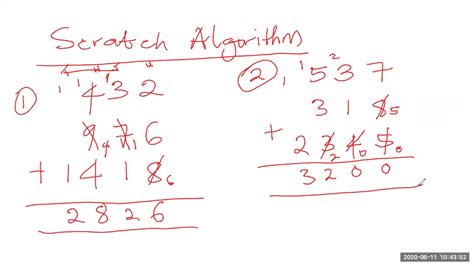 Scratch Algorithm
1
1 1 4 1 3 2
9 4 7 1 6
+ 1 4 1 8 6
2 8 2 6
2
1 1 5 2 3 7
3 1 8 5
+ 2 3 2 4 0 5 0
3 2 0 0
2020-06-11 10:43:52